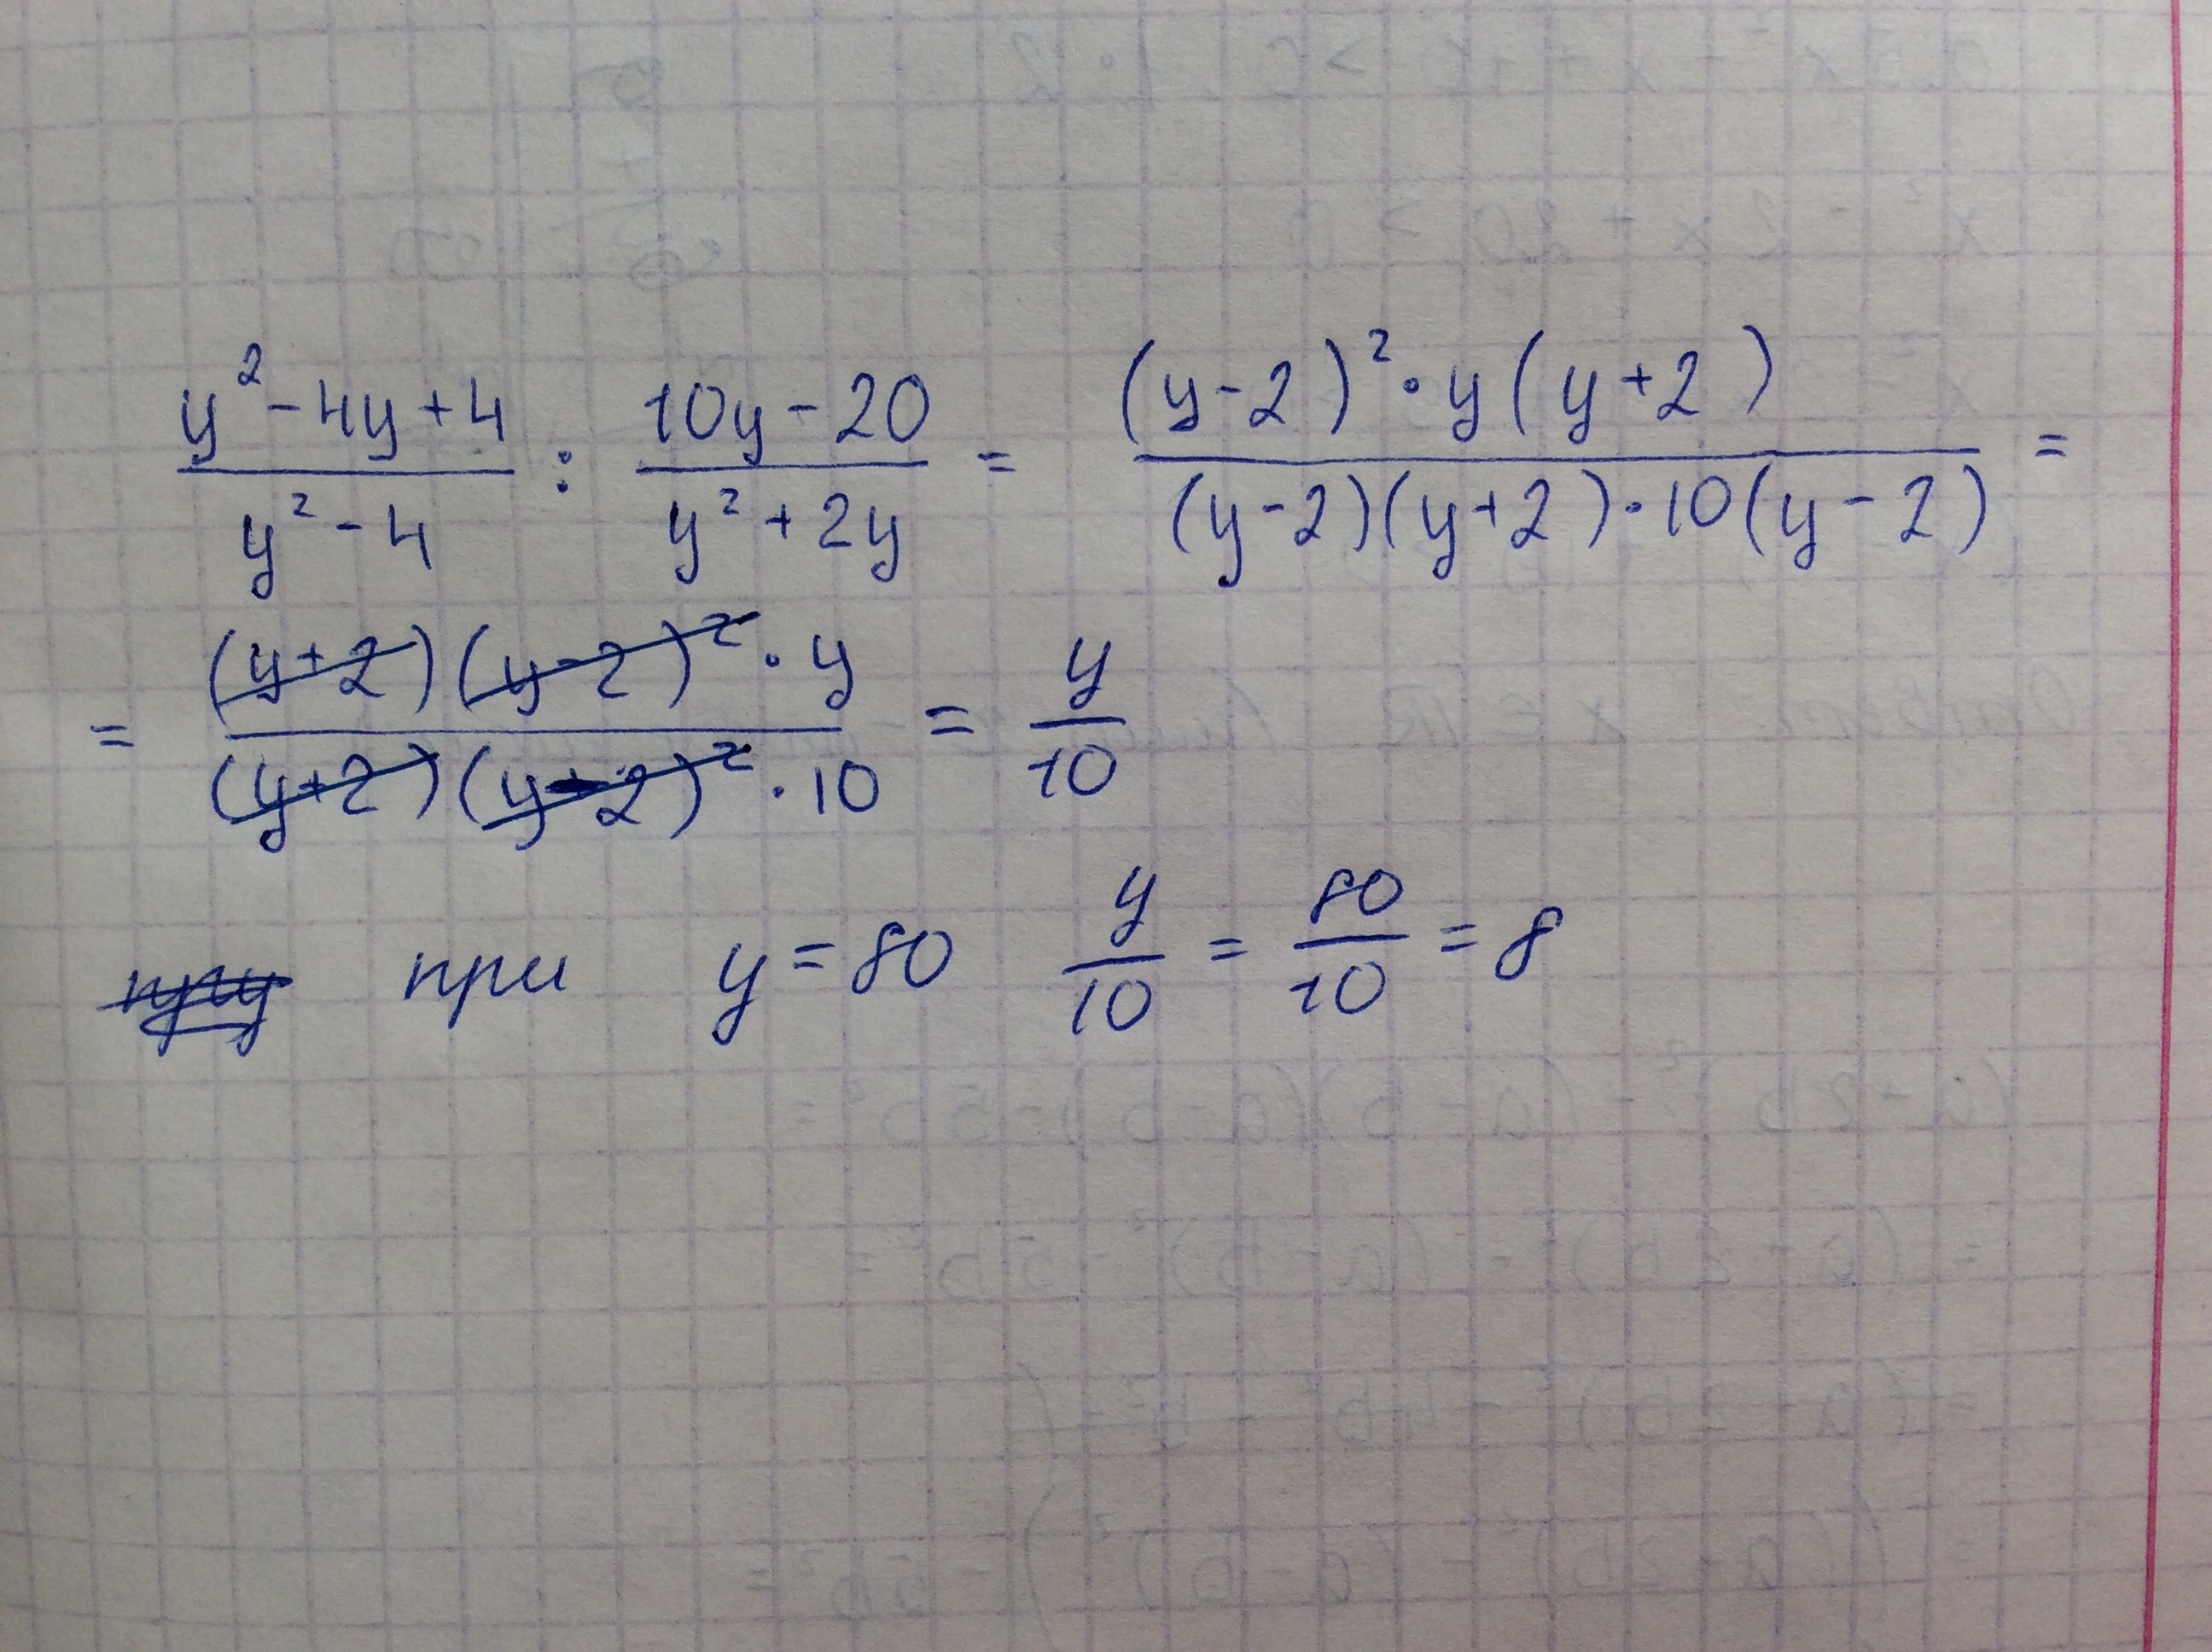 (y²-4y+4)/(y²-4) : (10y-20)/(y²+2y) = ((y-2)²·y(y+2))/((y-2)(y+2)·10(y-2)) =
= ((y+2)(y-2)²·y)/((y+2)(y-2)²·10) = y/10
при y=80 y/10 = 80/10 = 8